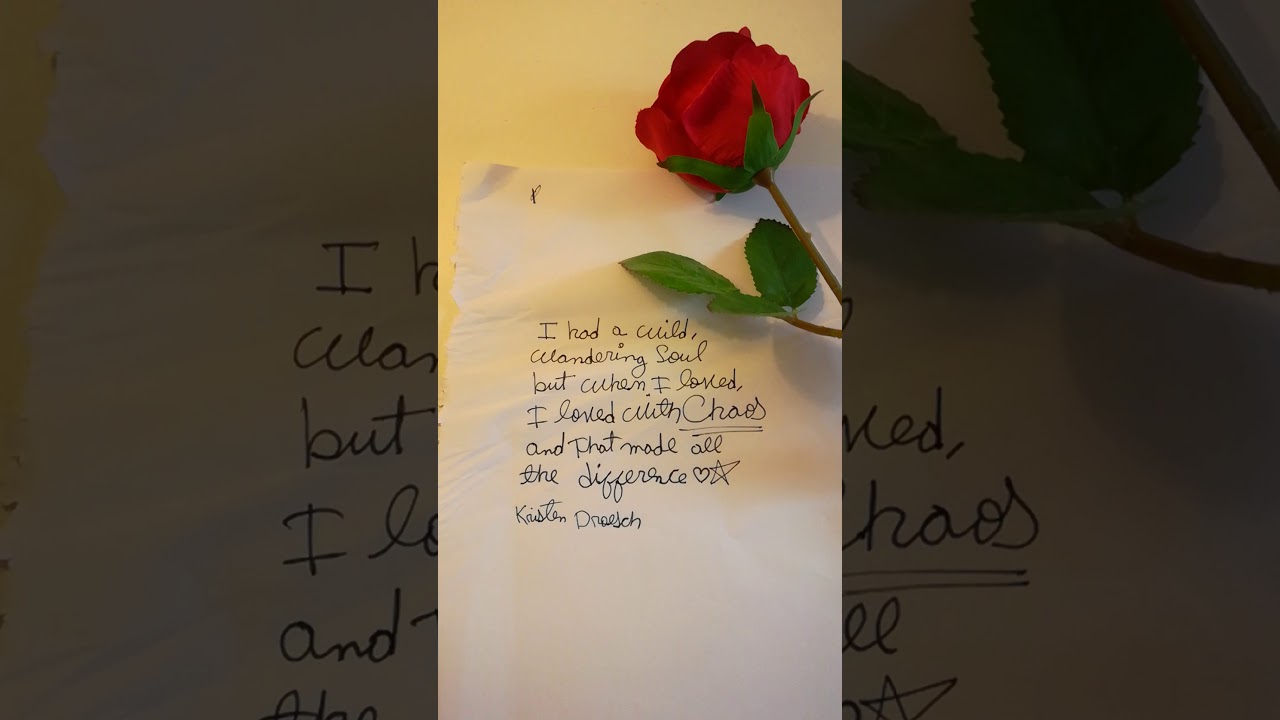 I had a wild,
wandering Soul
but when I loved,
I loved with Chaos
and That made all
the difference♡☆
Kristen Droesch